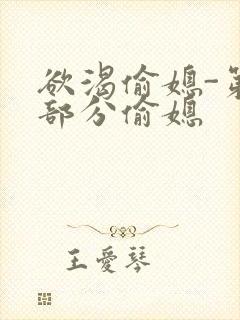 欲渴偷媳-第
部分偷媳
王愛琴